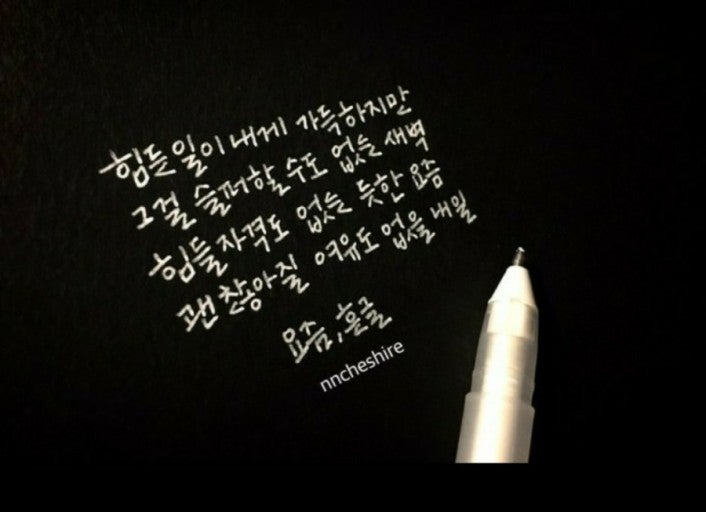 힘든 일이 내게 가득하지만
그걸 슬퍼할 수도 없을 새벽
힘들 자격도 없을 듯한 요즘
괜찮아질 여유도 없을 내일
요즘, 흔글
nncheshire